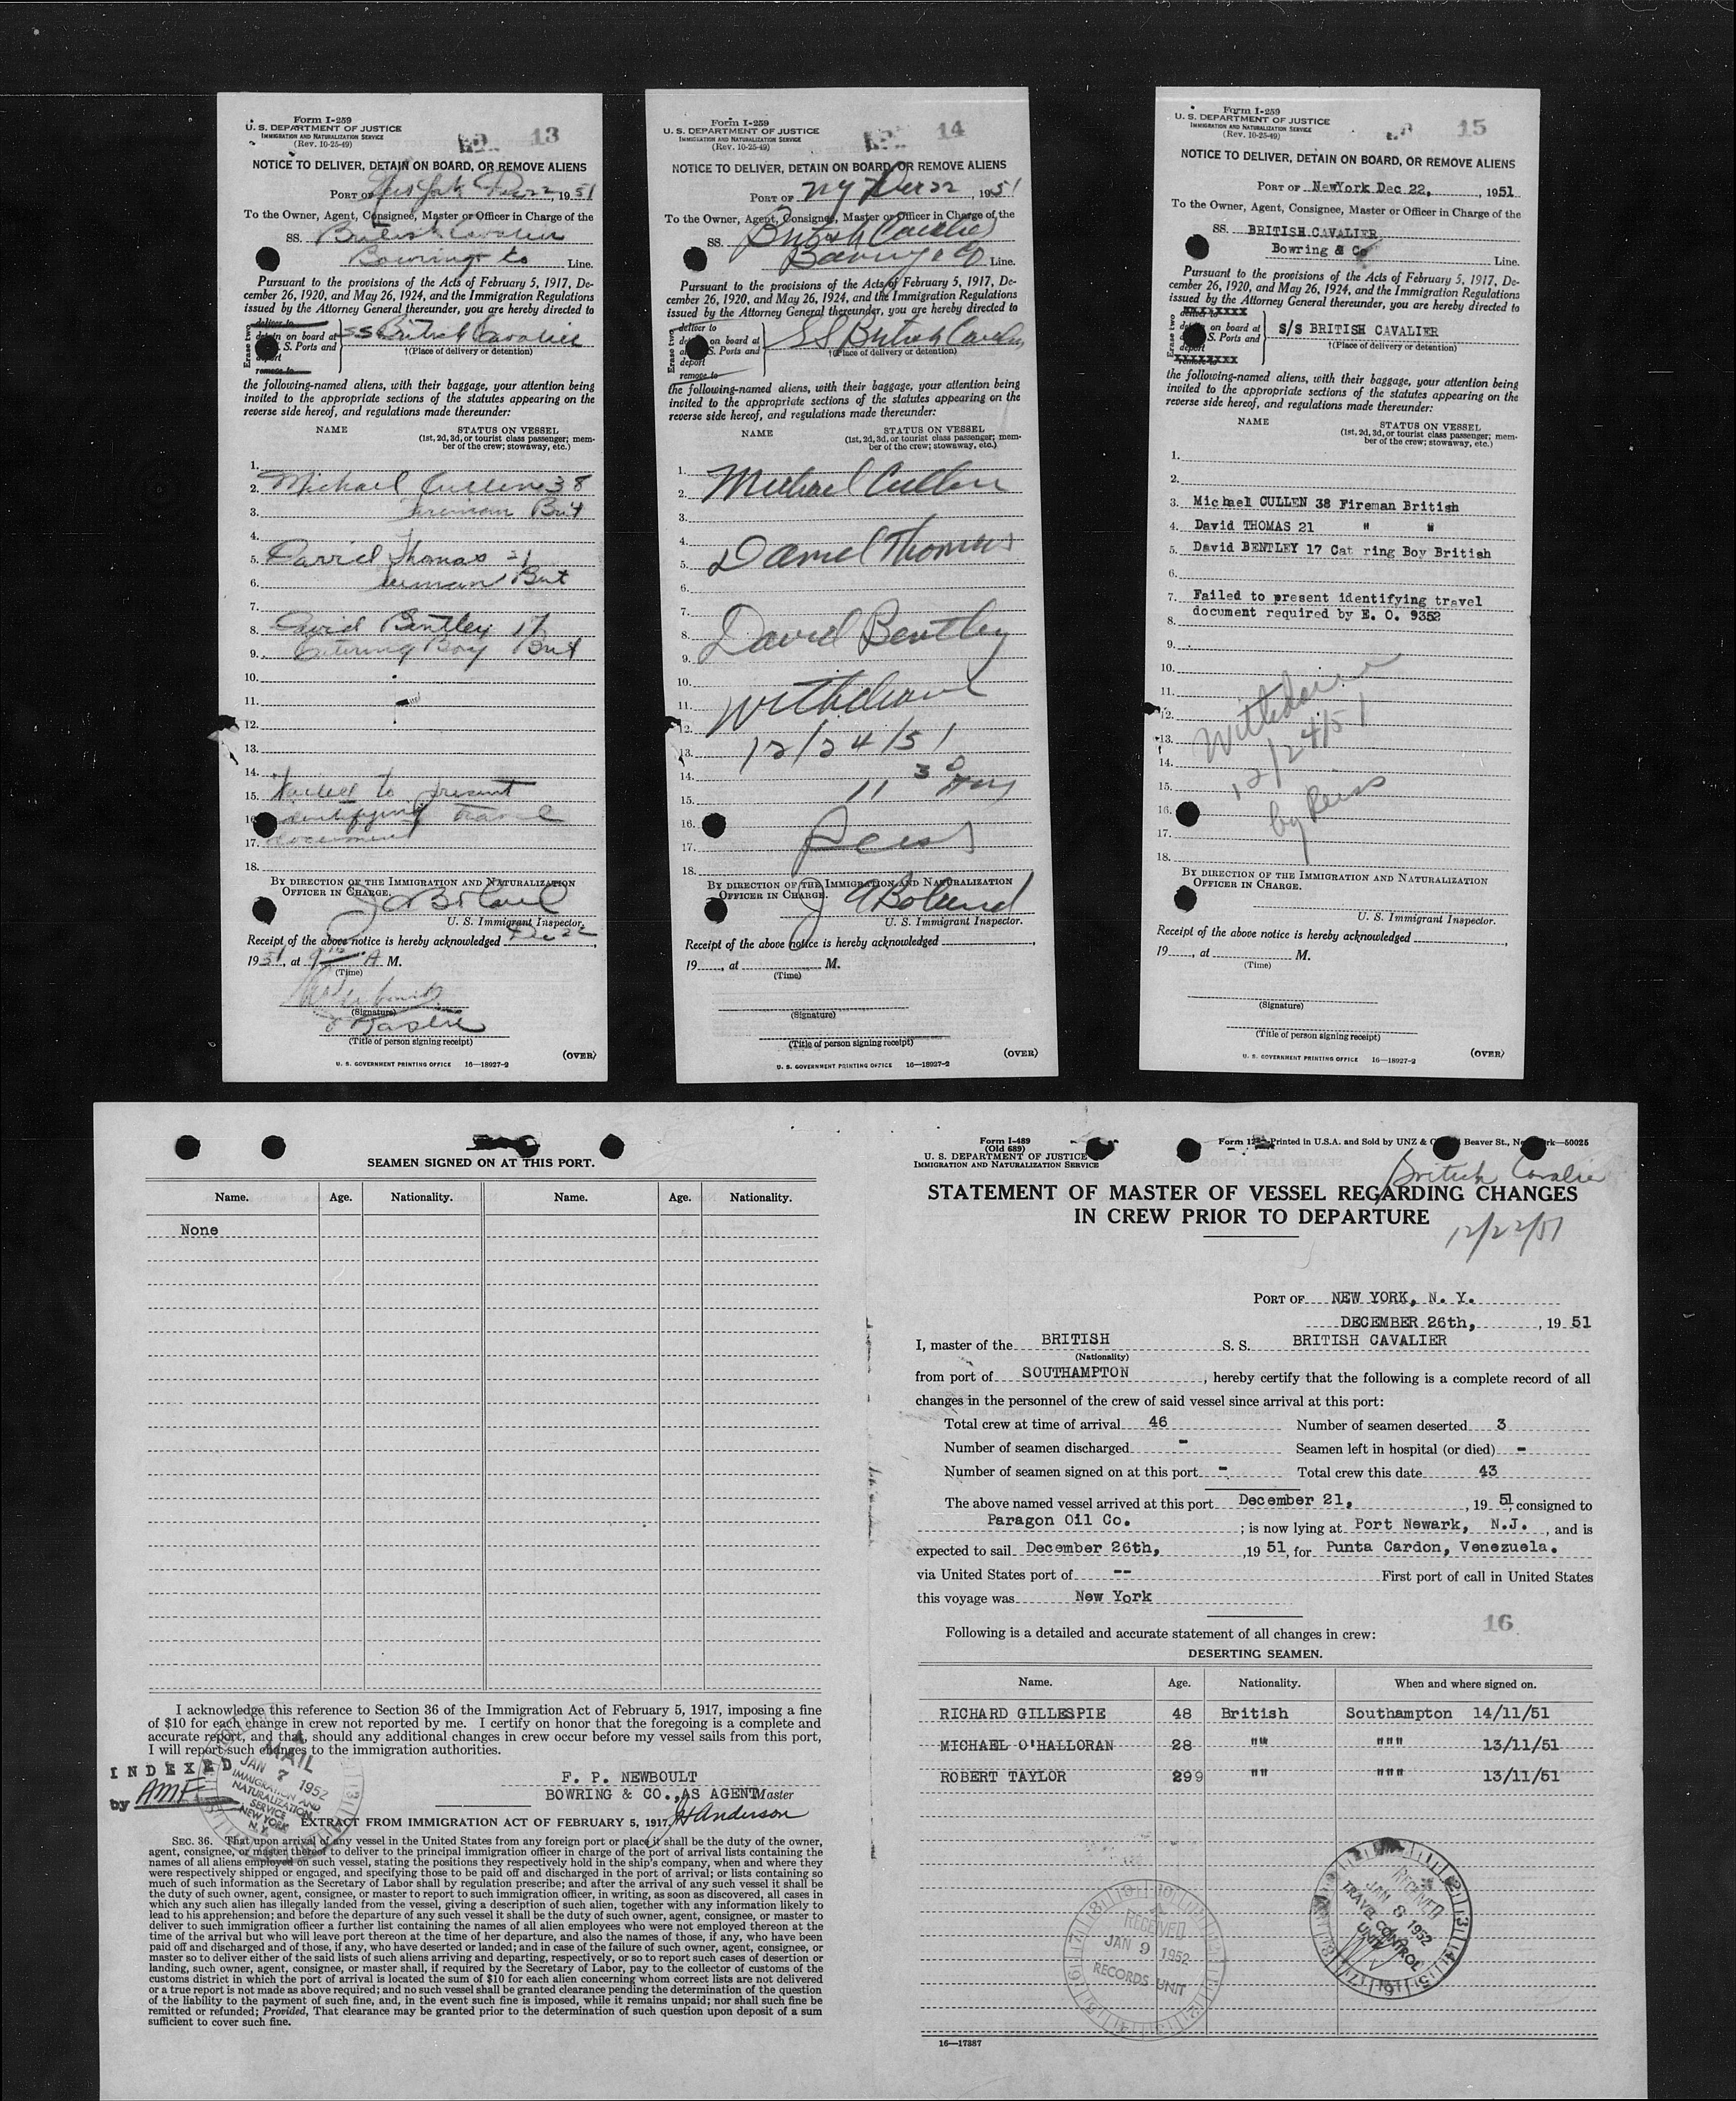 Form I-259
U. S. DEPARTMENT OF JUSTICE
IMMIGRATION AND NATURALIZATION SERVICE
(Rev. 10-25-49)
13
NOTICE TO DELIVER, DETAIN ON BOARD, OR REMOVE ALIENS
PORT OF New York Dec 22, 1951
To the Owner, Agent, Consignee, Master or Officer in Charge of the
SS. British Cavalier
Bowring & Co Line.
Pursuant to the provisions of the Acts of February 5, 1917, De-
cember 26, 1920, and May 26, 1924, and the Immigration Regulations
issued by the Attorney General thereunder, you are hereby directed to
Erase two
deliver to
on board at
S. Ports and
remove to
SS British Cavalier
†(Place of delivery or detention)
the following-named aliens, with their baggage, your attention being
invited to the appropriate sections of the statutes appearing on the
reverse side hereof, and regulations made thereunder:
NAME STATUS ON VESSEL
(1st, 2d, 3d, or tourist class passenger; mem-
ber of the crew; stowaway, etc.)
1.
2. Michael Cullen 38
3. Fireman Brit
4.
5. David Thomas 21
6. Fireman Brit
7.
8. David Bentley 17
9. Catering Boy Brit
10.
11.
12.
13.
14.
15. Failed to present
16. identifying travel
17. document
18.
BY DIRECTION OF THE IMMIGRATION AND NATURALIZATION
OFFICER IN CHARGE.
J A Boland
U. S. Immigrant Inspector.
Receipt of the above notice is hereby acknowledged Dec 22,
1951, at 9 A M.
(Time)
(Signature)
(Title of person signing receipt)
(OVER)
U. S. GOVERNMENT PRINTING OFFICE 16—18927-2
Form I-259
U. S. DEPARTMENT OF JUSTICE
IMMIGRATION AND NATURALIZATION SERVICE
(Rev. 10-25-49)
14
NOTICE TO DELIVER, DETAIN ON BOARD, OR REMOVE ALIENS
PORT OF NY Dec 22, 1951
To the Owner, Agent, Consignee, Master or Officer in Charge of the
SS. British Cavalier
Bowring & Co Line.
Pursuant to the provisions of the Acts of February 5, 1917, De-
cember 26, 1920, and May 26, 1924, and the Immigration Regulations
issued by the Attorney General thereunder, you are hereby directed to
Erase two
deliver to
on board at
S. Ports and
deport
remove to
SS British Cavalier
†(Place of delivery or detention)
the following-named aliens, with their baggage, your attention being
invited to the appropriate sections of the statutes appearing on the
reverse side hereof, and regulations made thereunder:
NAME STATUS ON VESSEL
(1st, 2d, 3d, or tourist class passenger; mem-
ber of the crew; stowaway, etc.)
1.
2. Michael Cullen
3.
4.
5. Daniel Thomas
6.
7.
8. David Bentley
9.
10.
11. Withdrawn
12.
13. 12/24/51
14.
15. 11 30 am
16.
17. Reiss
18.
BY DIRECTION OF THE IMMIGRATION AND NATURALIZATION
OFFICER IN CHARGE.
J A Boland
U. S. Immigrant Inspector.
Receipt of the above notice is hereby acknowledged ,
19 , at M.
(Time)
(Signature)
(Title of person signing receipt)
(OVER)
U. S. GOVERNMENT PRINTING OFFICE 16—18927-2
Form I-259
U. S. DEPARTMENT OF JUSTICE
IMMIGRATION AND NATURALIZATION SERVICE
(Rev. 10-25-49)
15
NOTICE TO DELIVER, DETAIN ON BOARD, OR REMOVE ALIENS
PORT OF NewYork Dec 22, , 1951
To the Owner, Agent, Consignee, Master or Officer in Charge of the
SS. BRITISH CAVALIER
Bowring & Co Line.
Pursuant to the provisions of the Acts of February 5, 1917, De-
cember 26, 1920, and May 26, 1924, and the Immigration Regulations
issued by the Attorney General thereunder, you are hereby directed to
Erase two
on board at
S. Ports and
S/S BRITISH CAVALIER
†(Place of delivery or detention)
the following-named aliens, with their baggage, your attention being
invited to the appropriate sections of the statutes appearing on the
reverse side hereof, and regulations made thereunder:
NAME STATUS ON VESSEL
(1st, 2d, 3d, or tourist class passenger; mem-
ber of the crew; stowaway, etc.)
1.
2.
3. Michael CULLEN 38 Fireman British
4. David THOMAS 21 " "
5. David BENTLEY 17 Cat ring Boy British
6.
7. Failed to present identifying travel
document required by E. O. 9352
8.
9.
10.
11.
12. Withdrawn
13.
14. 12/24/51
15.
16. by Reiss
17.
18.
BY DIRECTION OF THE IMMIGRATION AND NATURALIZATION
OFFICER IN CHARGE.
U. S. Immigrant Inspector.
Receipt of the above notice is hereby acknowledged ,
19 , at M.
(Time)
(Signature)
(Title of person signing receipt)
(OVER)
U. S. GOVERNMENT PRINTING OFFICE 16—18927-2
SEAMEN SIGNED ON AT THIS PORT.
Name. Age. Nationality. Name. Age. Nationality.
None
I acknowledge this reference to Section 36 of the Immigration Act of February 5, 1917, imposing a fine
of $10 for each change in crew not reported by me. I certify on honor that the foregoing is a complete and
accurate report, and that, should any additional changes in crew occur before my vessel sails from this port,
I will report such changes to the immigration authorities.
INDEXED
by AMF
MAIL
JAN 7 1952
IMMIGRATION AND
NATURALIZATION
SERVICE
NEW YORK
N. Y.
F. P. NEWBOULT
BOWRING & CO., AS AGENT Master
JHAnderson
EXTRACT FROM IMMIGRATION ACT OF FEBRUARY 5, 1917.
SEC. 36. That upon arrival of any vessel in the United States from any foreign port or place it shall be the duty of the owner,
agent, consignee, or master thereof to deliver to the principal immigration officer in charge of the port of arrival lists containing the
names of all aliens employed on such vessel, stating the positions they respectively hold in the ship's company, when and where they
were respectively shipped or engaged, and specifying those to be paid off and discharged in the port of arrival; or lists containing so
much of such information as the Secretary of Labor shall by regulation prescribe; and after the arrival of any such vessel it shall be
the duty of such owner, agent, consignee, or master to report to such immigration officer, in writing, as soon as discovered, all cases in
which any such alien has illegally landed from the vessel, giving a description of such alien, together with any information likely to
lead to his apprehension; and before the departure of any such vessel it shall be the duty of such owner, agent, consignee, or master to
deliver to such immigration officer a further list containing the names of all alien employees who were not employed thereon at the
time of the arrival but who will leave port thereon at the time of her departure, and also the names of those, if any, who have been
paid off and discharged and of those, if any, who have deserted or landed; and in case of the failure of such owner, agent, consignee, or
master so to deliver either of the said lists of such aliens arriving and departing, respectively, or so to report such cases of desertion or
landing, such owner, agent, consignee, or master shall, if required by the Secretary of Labor, pay to the collector of customs of the
customs district in which the port of arrival is located the sum of $10 for each alien concerning whom correct lists are not delivered
or a true report is not made as above required; and no such vessel shall be granted clearance pending the determination of the question
of the liability to the payment of such fine, and, in the event such fine is imposed, while it remains unpaid; nor shall such fine be
remitted or refunded; Provided, That clearance may be granted prior to the determination of such question upon deposit of a sum
sufficient to cover such fine.
Form I-489
(Old 689)
U. S. DEPARTMENT OF JUSTICE
IMMIGRATION AND NATURALIZATION SERVICE
Printed in U.S.A. and Sold by UNZ & Beaver St., —50025
British Cavalier
STATEMENT OF MASTER OF VESSEL REGARDING CHANGES
IN CREW PRIOR TO DEPARTURE
12/22/51
PORT OF NEW YORK, N. Y.
DECEMBER 26th, , 1951
I, master of the BRITISH S. S. BRITISH CAVALIER
(Nationality)
from port of SOUTHAMPTON , hereby certify that the following is a complete record of all
changes in the personnel of the crew of said vessel since arrival at this port:
Total crew at time of arrival 46 Number of seamen deserted 3
Number of seamen discharged - Seamen left in hospital (or died) -
Number of seamen signed on at this port - Total crew this date 43
The above named vessel arrived at this port December 21, , 1951, consigned to
Paragon Oil Co. ; is now lying at Port Newark, N.J. , and is
expected to sail December 26th, , 1951, for Punta Cardon, Venezuela.
via United States port of -- First port of call in United States
this voyage was New York
16
Following is a detailed and accurate statement of all changes in crew:
DESERTING SEAMEN.
Name. Age. Nationality. When and where signed on.
RICHARD GILLESPIE 48 British Southampton 14/11/51
MICHAEL O'HALLORAN 28 "" """ 13/11/51
ROBERT TAYLOR 299 "" """ 13/11/51
RECEIVED
JAN 9 1952
RECORDS UNIT
RECEIVED
JAN 8 1952
TRAVEL CONTROL
UNIT
16—17387